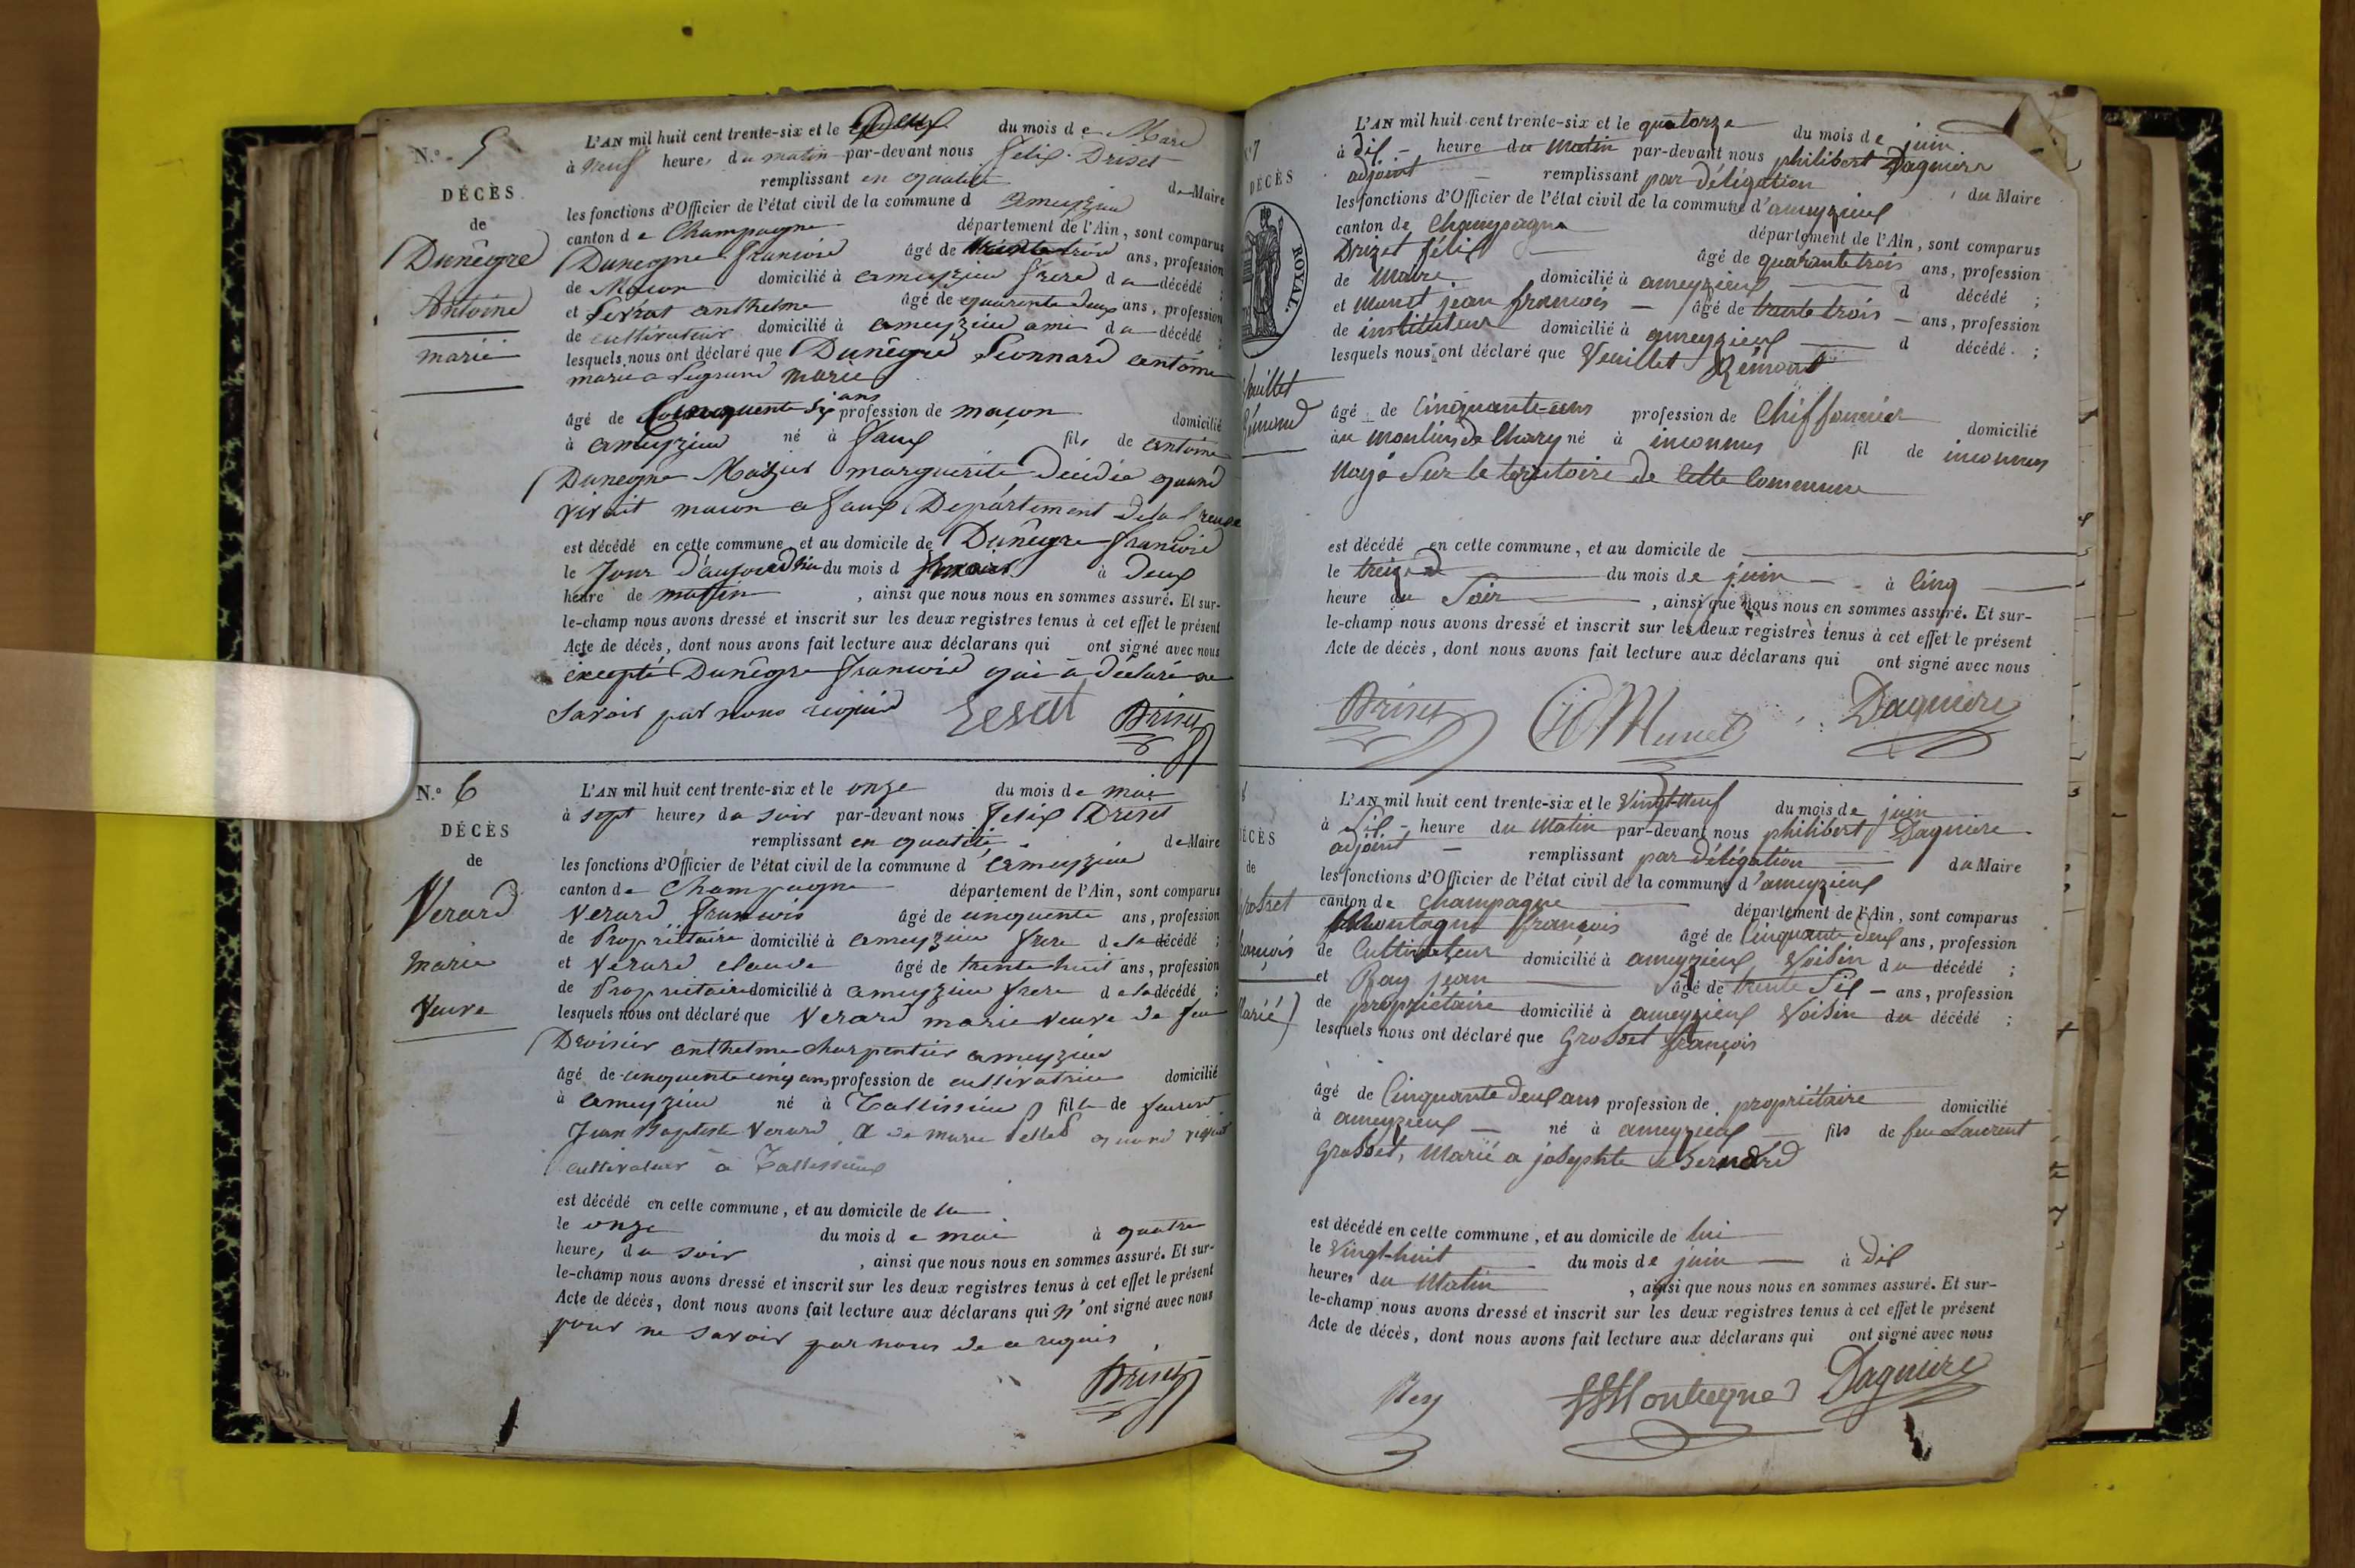 N.° 5
DÉCÈS
de
Dunêgre
Antoine
marié
L'AN mil huit cent trente-six et le Deux du mois de Mars
à neuf heures du matin par-devant nous Felix Driset
remplissant en qualité de Maire
les fonctions d'Officier de l'état civil de la commune d ameyzieu
canton de Champagne département de l'Ain, sont comparus
Dunegre francois âgé de trente trois ans, profession
de Maçon domicilié à ameyzieu frere du décédé ;
et Serrat anthelme âgé de quarente deux ans, profession
de cultivateur domicilié à ameyzieu ami du décédé ;
lesquels nous ont déclaré que Dunêgre Leonnard antoine
marie a Legrand marie
âgé de Cinquente six ans profession de maçon domicilié
à ameyzieu né à faux fils de antoine
Dunegre marguerite décédée quand
vivait maçon a faux Département de la Creuse
est décédé en cette commune, et au domicile de Dunêgre francois
le Jour d'aujourdhui du mois d à deux
heure de matin , ainsi que nous nous en sommes assuré. Et sur-
le-champ nous avons dressé et inscrit sur les deux registres tenus à cet effet le présent
Acte de décès, dont nous avons fait lecture aux déclarans qui ont signé avec nous
éxcepté Dunêgre francois qui à déclaré ne
savoir par nous requis
Driset
N.° 6
DÉCÈS
de
Verard
Marie
Veuve
L'AN mil huit cent trente-six et le onze du mois de mai
à sept heures du soir par-devant nous Felix Driset
remplissant en qualité de Maire
les fonctions d'Officier de l'état civil de la commune d ameyzieu
canton de Champagne département de l'Ain, sont comparus
Verard francois âgé de cinquente ans, profession
de Propriétaire domicilié à ameyzieu frere de la décédé ;
et Verard claude âgé de trente huit ans, profession
de Propriétaire domicilié à ameyzieu frere de la décédé ;
lesquels nous ont déclaré que Verard marie veuve de feu
Droisier anthelme charpentier ameyzieu
âgé de cinquente cinq ans profession de cultivatrice domicilié
à ameyzieu né à Tallissieu fille de
Jean Baptiste Verard & de marie quand vivait
cultivateur à Tallissieu
est décédé en cette commune, et au domicile de
le onze du mois de mai à quatre
heures du soir , ainsi que nous nous en sommes assuré. Et sur-
le-champ nous avons dressé et inscrit sur les deux registres tenus à cet effet le présent
Acte de décès, dont nous avons fait lecture aux déclarans qui n'ont signé avec nous
pour ne savoir par nous de ce requis
Driset
7
DÉCÈS
ROYAL.
L'AN mil huit cent trente-six et le quatorze du mois de juin
à dix heure du matin par-devant nous philibert Daguiere
adjoint remplissant par délégation du Maire
les fonctions d'Officier de l'état civil de la commune d'ameyzieux
canton de Champagne département de l'Ain, sont comparus
Drizet félix âgé de quarante trois ans, profession
de Maire domicilié à ameyzieux d décédé ;
et Munet jean françois âgé de trente trois ans, profession
de instituteur domicilié à ameyzieux d décédé. ;
lesquels nous ont déclaré que Veuillet Rémond
âgé de Cinquante-ans profession de Chiffonnier domicilié
au moulins de Chary né à inconnus fil de inconnus
Noyé Sur le territoire de Cette Commune
est décédé en cette commune, et au domicile de
le treize du mois de juin à Cinq
heure du Soir , ainsi que nous nous en sommes assuré. Et sur-
le-champ nous avons dressé et inscrit sur les deux registres tenus à cet effet le présent
Acte de décès, dont nous avons fait lecture aux déclarans qui ont signé avec nous
Driset Munet Daguiere
DÉCÈS
de
L'AN mil huit cent trente-six et le Vingt-neuf du mois de juin
à dix heure du Matin par-devant nous philibert Daguiere
adjoint remplissant par délégation du Maire
les fonctions d'Officier de l'état civil de la commune d'ameyzieux
canton de Champagne département de l'Ain, sont comparus
Montagne françois âgé de Cinquante deux ans, profession
de Cultivateur domicilié à ameyzieux Voisin du décédé ;
et Ray jean âgé de trente Six ans, profession
de propriétaire domicilié à ameyzieux Voisin du décédé ;
lesquels nous ont déclaré que Grosset françois
âgé de Cinquante deux ans profession de propriétaire domicilié
à ameyzieux né à ameyzieux fils de feu Laurent
Grosset, Marié a josephte Bernard
est décédé en cette commune, et au domicile de lui
le Vingt-huit du mois de juin à dix
heures du Matin , ainsi que nous nous en sommes assuré. Et sur-
le-champ nous avons dressé et inscrit sur les deux registres tenus à cet effet le présent
Acte de décès, dont nous avons fait lecture aux déclarans qui ont signé avec nous
Rey Montagne Daguiere